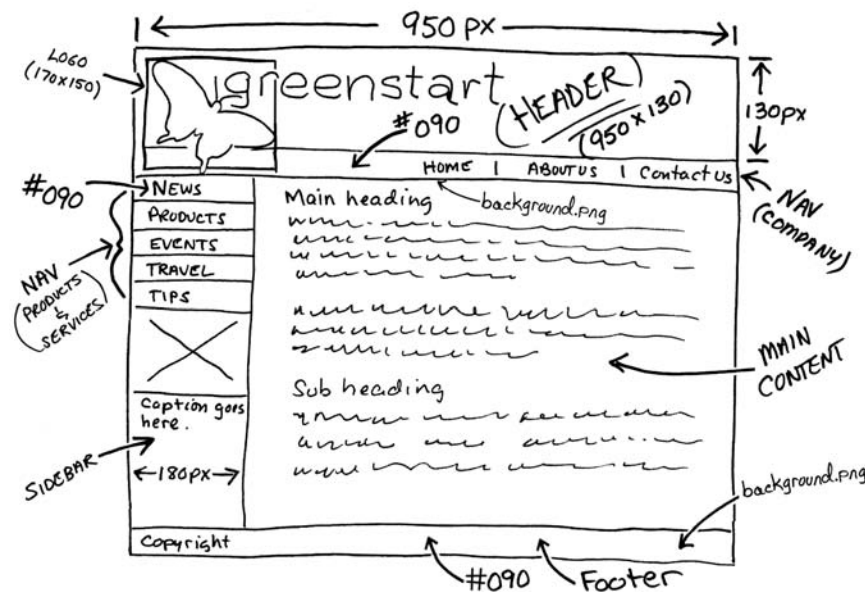 950 px
LOGO
(170x150)
greenstart
(HEADER)
(950 x 130)
130px
#090
HOME | ABOUT US | Contact Us
#090
NEWS
background.png
NAV
(COMPANY)
PRODUCTS
EVENTS
TRAVEL
TIPS
NAV
(PRODUCTS
&
SERVICES)
Main heading
MAIN
CONTENT
Sub heading
Caption goes
here.
SIDEBAR
180px
background.png
Copyright
#090
Footer